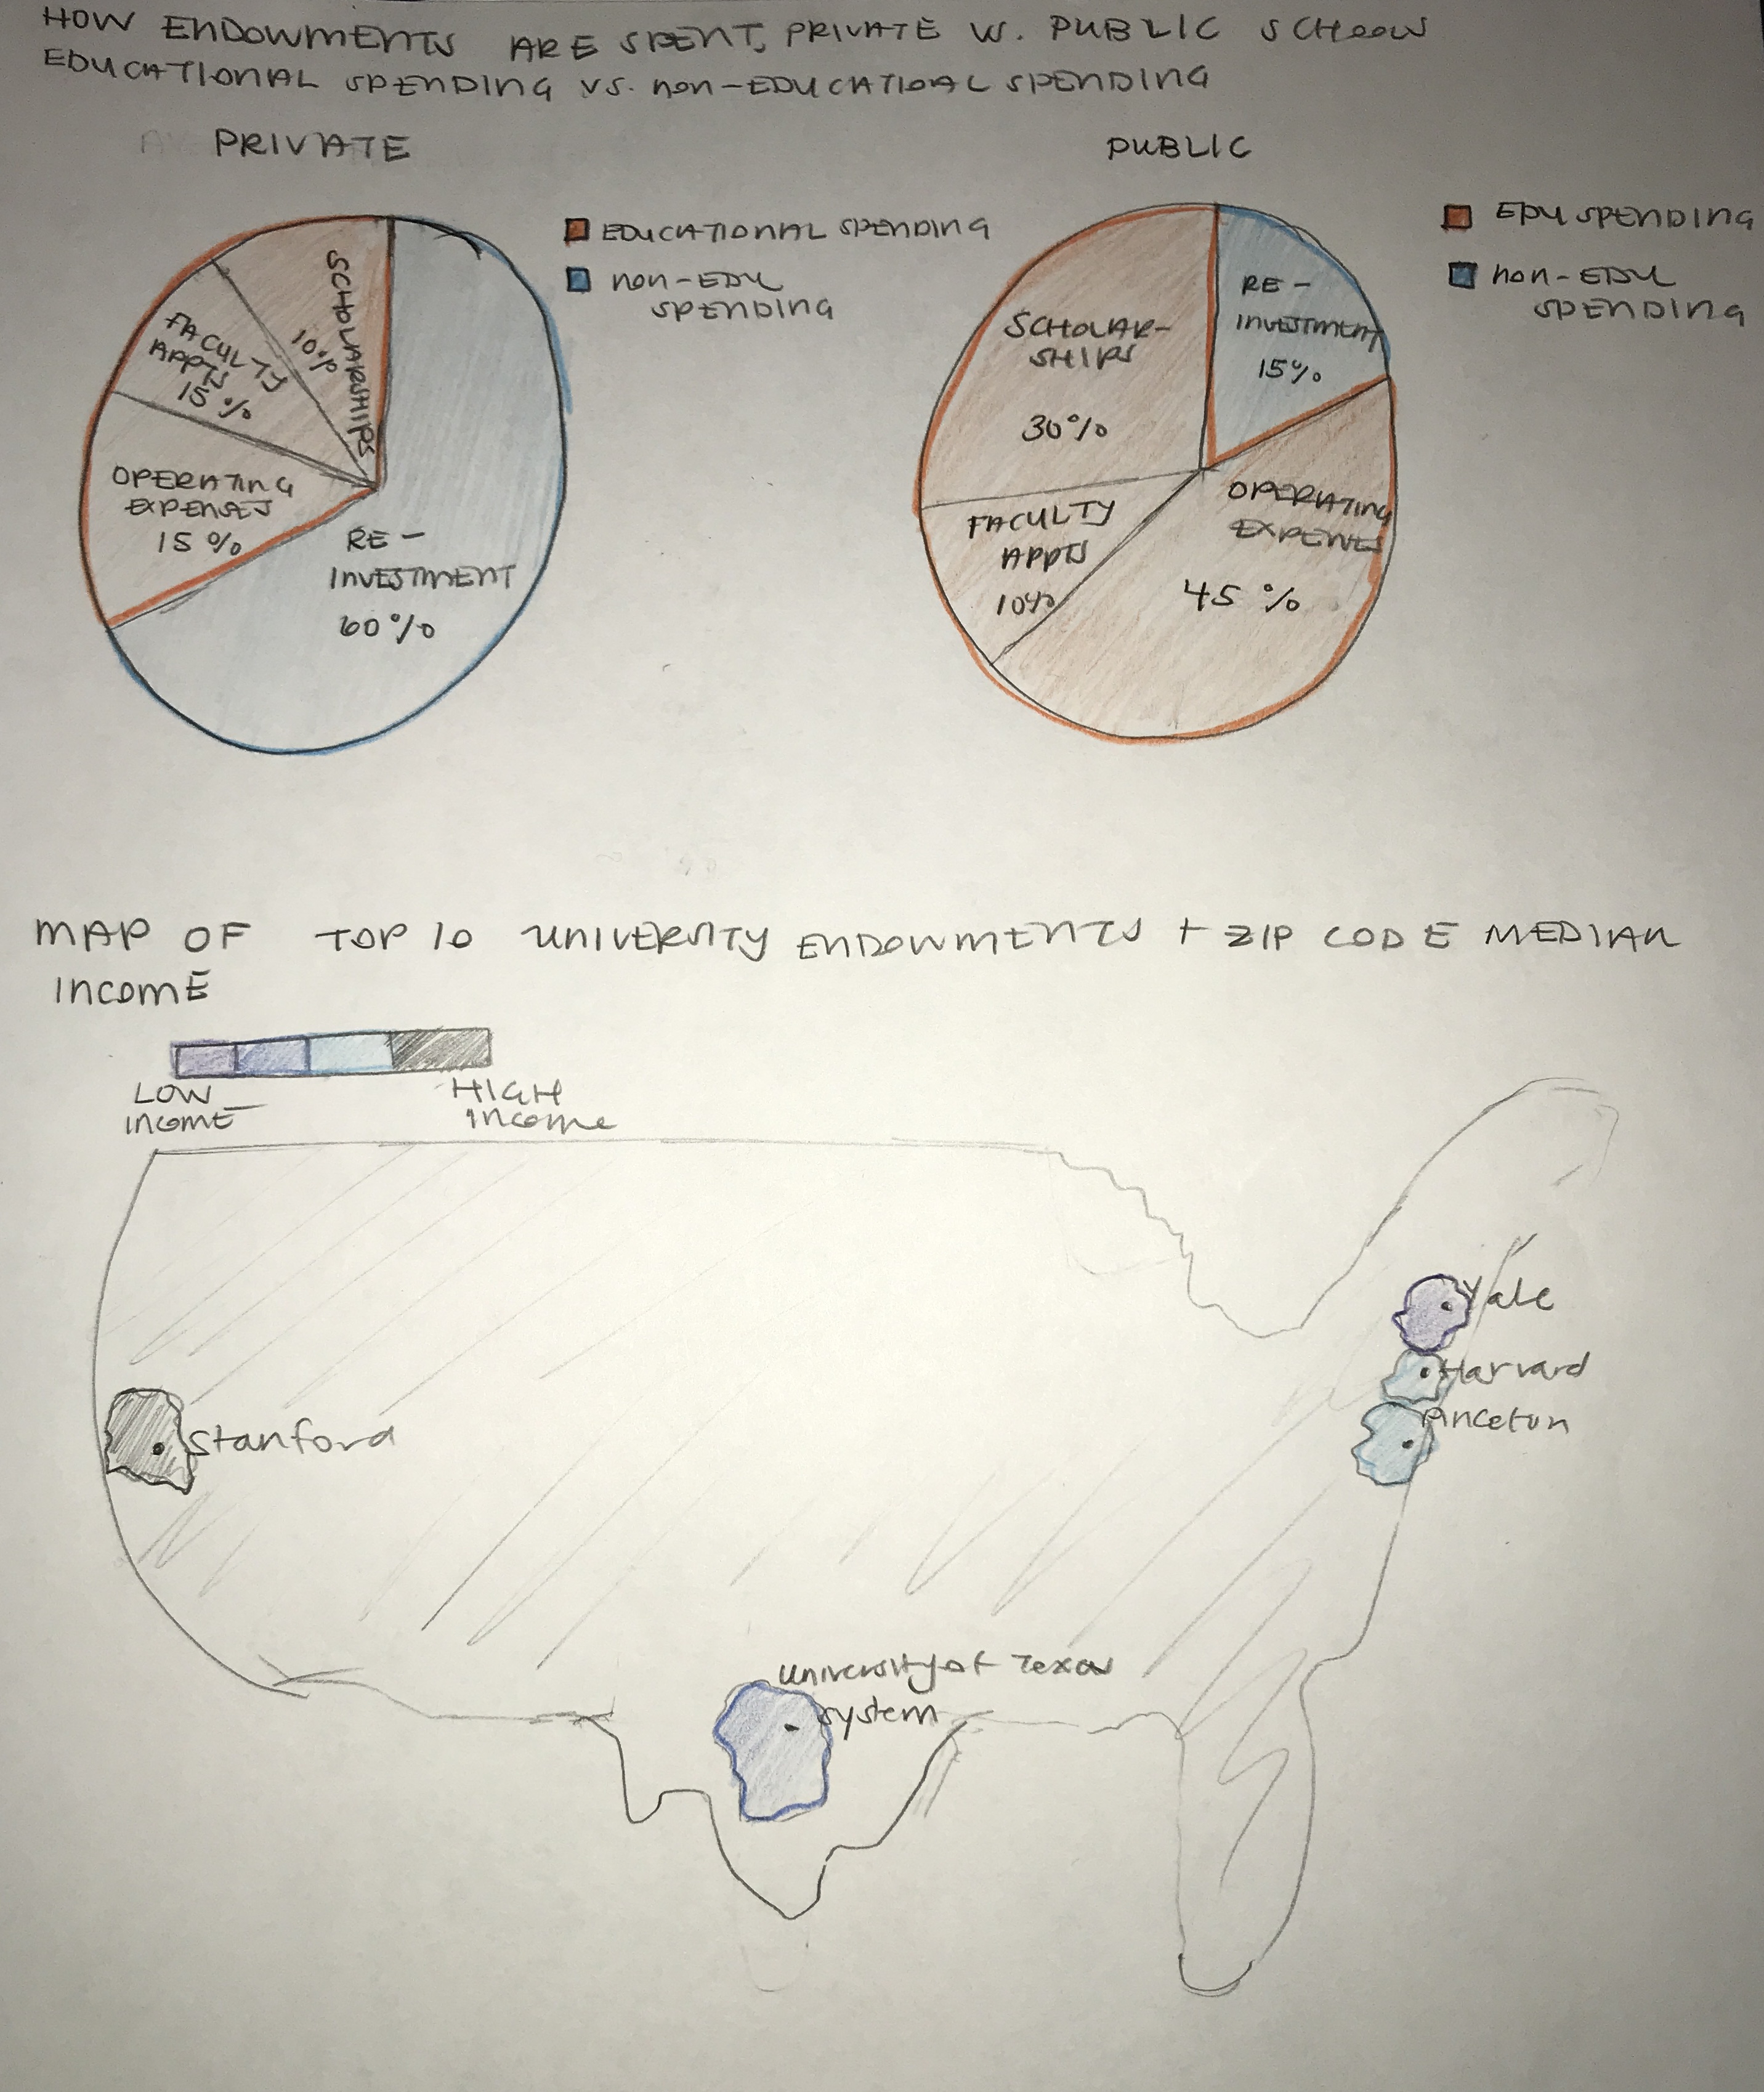 HOW ENDOWMENTS ARE SPENT, PRIVATE VS. PUBLIC SCHOOLS
EDUCATIONAL SPENDING VS. NON-EDUCATIONAL SPENDING
PRIVATE
SCHOLARSHIPS
10%
FACULTY
APPTS
15%
OPERATING
EXPENSES
15%
RE-
INVESTMENT
60%
EDUCATIONAL SPENDING
NON-EDU
SPENDING
PUBLIC
SCHOLAR-
SHIPS
30%
RE-
INVESTMENT
15%
FACULTY
APPTS
10%
OPERATING
EXPENSES
45%
EDU SPENDING
NON-EDU
SPENDING
MAP OF TOP 10 UNIVERSITY ENDOWMENTS + ZIP CODE MEDIAN
INCOME
LOW
INCOME
HIGH
INCOME
Yale
Harvard
Princeton
Stanford
University of Texas
system